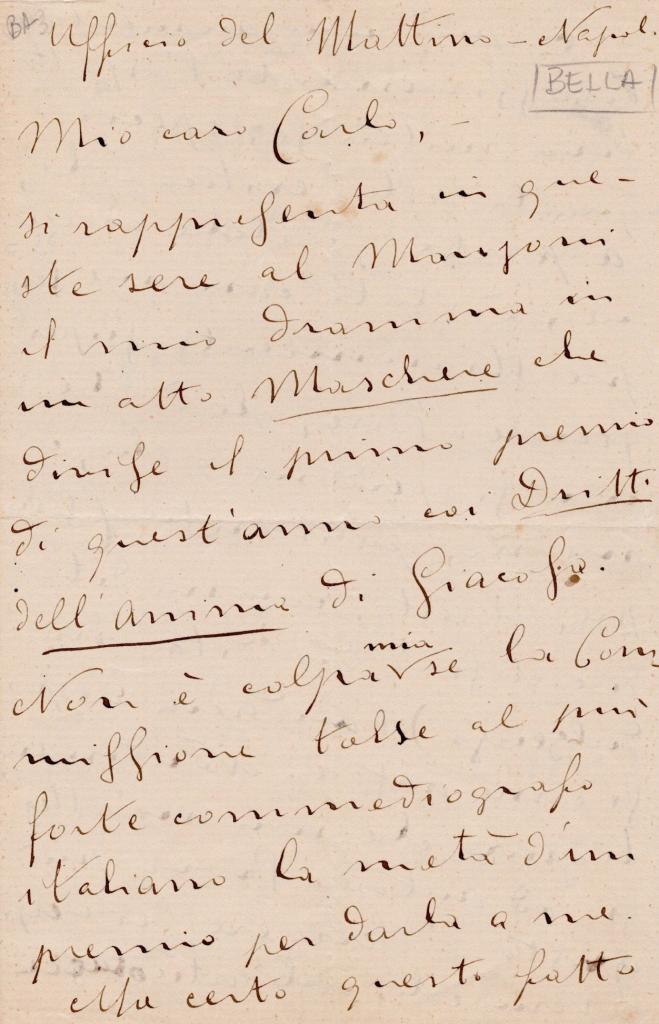 BA3
Ufficio del Mattino - Napoli
BELLA
Mio caro Carlo, -
si rappresenta in que-
ste sere al Manzoni
il mio dramma in
un atto Maschere che
divise il primo premio
di quest'anno coi Dritti
dell'anima di Giacosa.
Non è colpa mia se la Com
missione tolse al più
forte commediografo
italiano la metà d'un
premio per darla a me.
Ma certo questo fatto